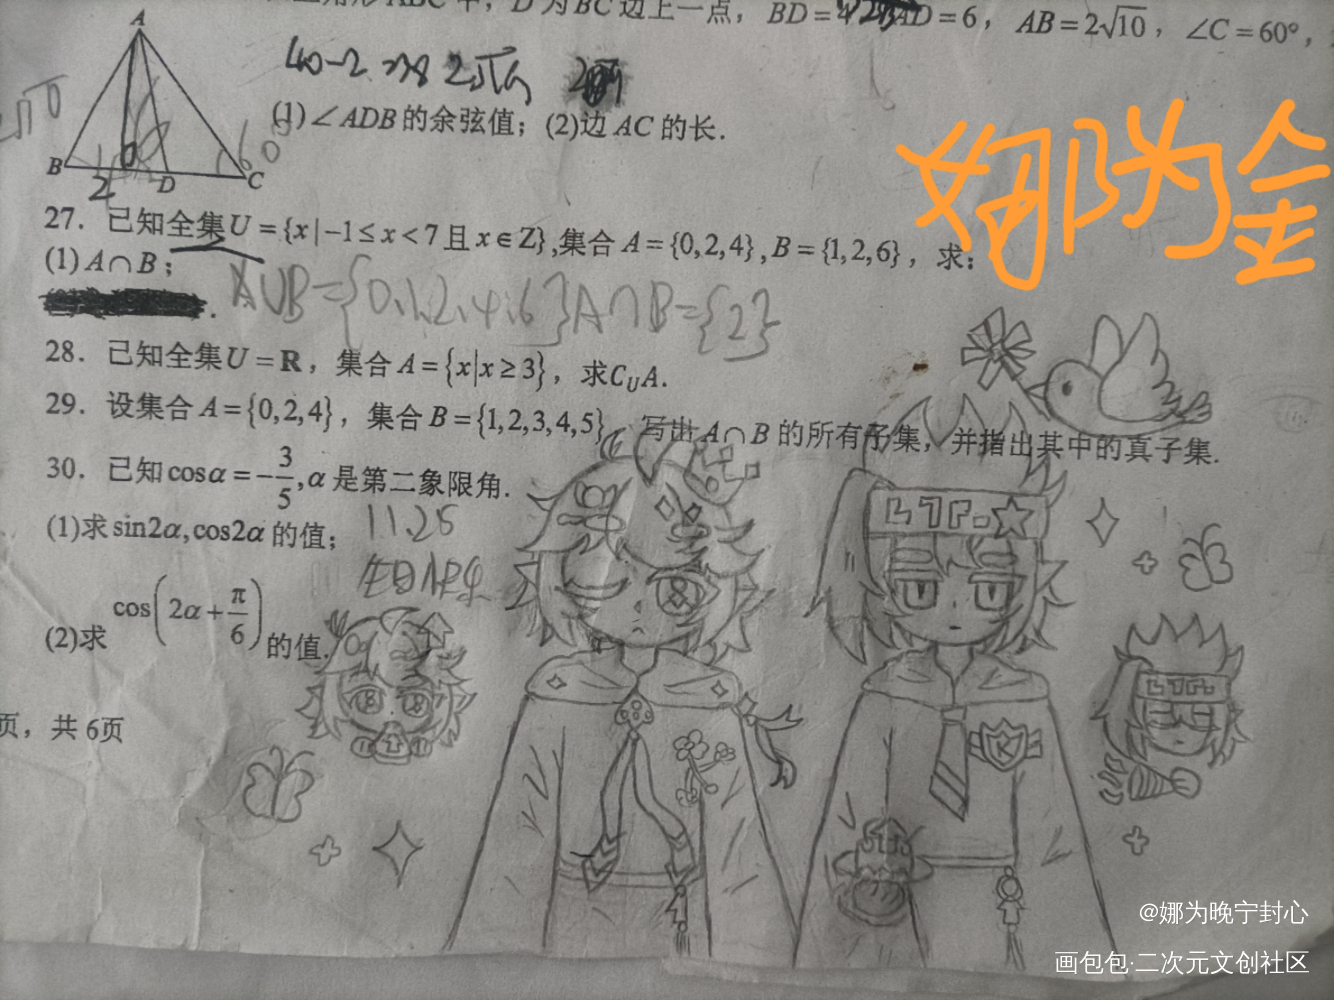 为BC边上一点，BD=4 AD=6，AB=2√10，∠C=60°，
(1)∠ADB的余弦值；(2)边AC的长.
A
B
D
C
2
60
娜为金
27. 已知全集U={x|-1≤x<7且x∈Z},集合A={0,2,4},B={1,2,6}，求：
(1)A∩B；
A∪B={0.1.2.4.6} A∩B={2}
28. 已知全集U=R，集合A={x|x≥3}，求C_UA.
29. 设集合A={0,2,4}，集合B={1,2,3,4,5}，写出A∩B的所有子集，并指出其中的真子集.
30. 已知cosα=-3/5,α是第二象限角.
(1)求sin2α,cos2α的值；
11.25
(2)求cos(2α+π/6)的值.
页，共6页
K
@娜为晚宁封心
画包包·二次元文创社区